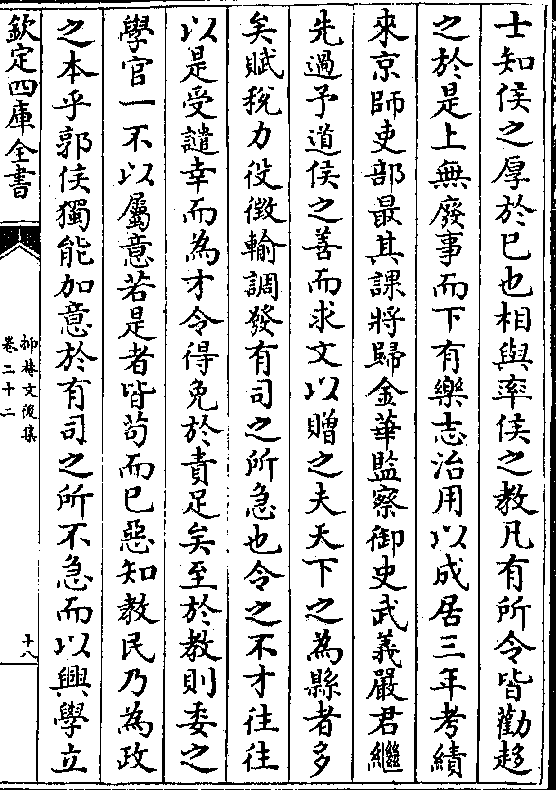 士知侯之厚於已也相與率侯之教凡有所令皆勸趍
之於是上無廢事而下有樂志治用以成居三年考績
來京師吏部最其課將歸金華監察御史武義嚴君繼
先過予道侯之善而求文以贈之夫天下之為縣者多
矣賦稅力役徴輸調發有司之所急也令之不才往往
以是受譴幸而為才令得免於責足矣至於教則委之
學官一不以屬意若是者皆苟而已惡知教民乃為政
之本乎郭侯獨能加意於有司之所不急而以興學立
欽定四庫全書
抑菴文後集
卷二十二
十八